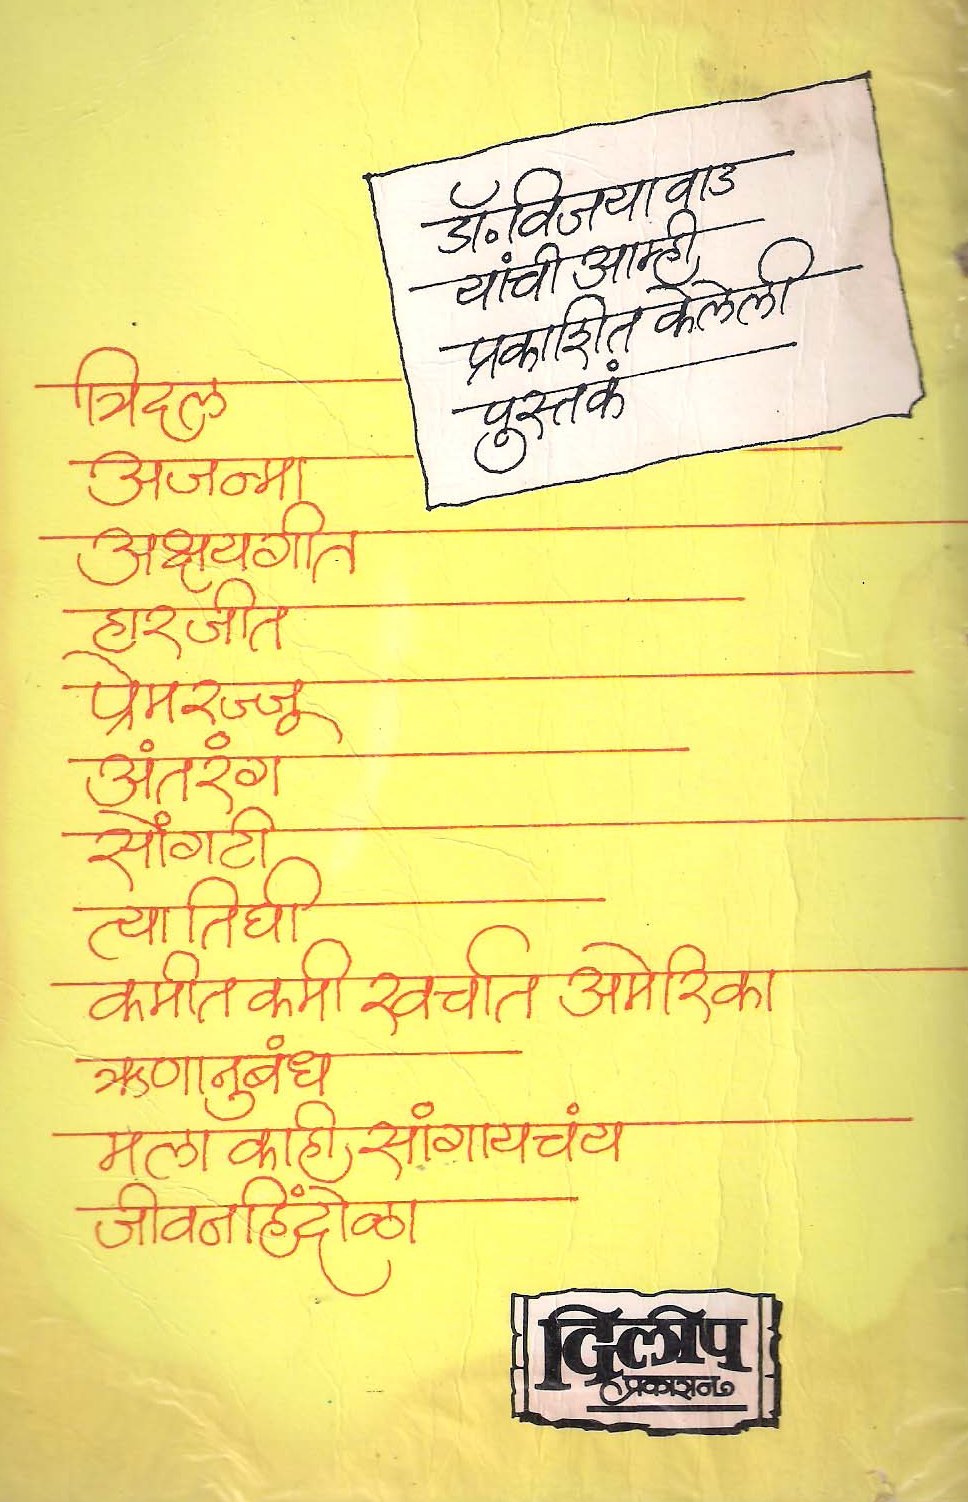 डॉ. विजया वाड
यांची आम्ही
प्रकाशित केलेली
पुस्तकं
त्रिदल
अजन्मा
अक्षयगीत
हारजीत
प्रेमरज्जू
अंतरंग
सोंगटी
त्या तिघी
कमीत कमी खर्चात अमेरिका
ऋणानुबंध
मला काही सांगायचंय
जीवनहिंदोळा
दिलीप
प्रकाशन